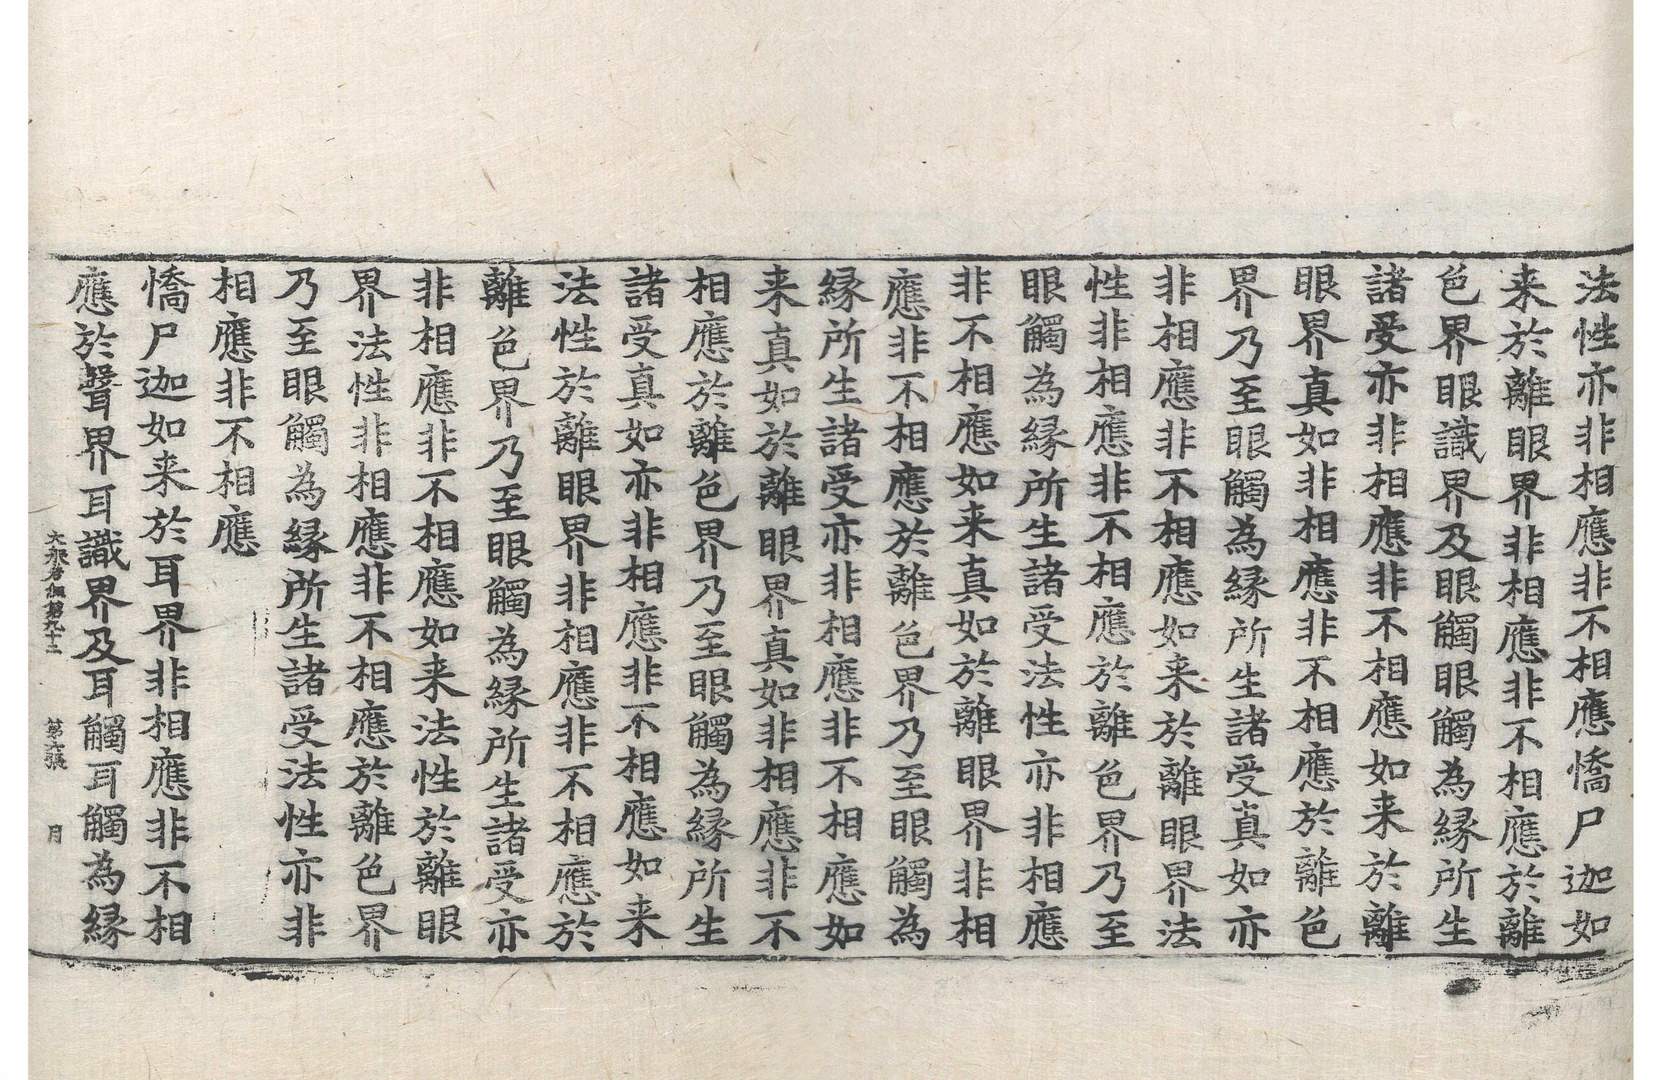 法性亦非相應非不相應憍尸迦如
来於離眼界非相應非不相應於離
色界眼識界及眼觸眼觸為縁所生
諸受亦非相應非不相應如来於離
眼界真如非相應非不相應於離色
界乃至眼觸為縁所生諸受真如亦
非相應非不相應如来於離眼界法
性非相應非不相應於離色界乃至
眼觸為縁所生諸受法性亦非相應
非不相應如来真如於離眼界非相
應非不相應於離色界乃至眼觸為
縁所生諸受亦非相應非不相應如
来真如於離眼界真如非相應非不
相應於離色界乃至眼觸為縁所生
諸受真如亦非相應非不相應如来
法性於離眼界非相應非不相應於
離色界乃至眼觸為縁所生諸受亦
非相應非不相應如来法性於離眼
界法性非相應非不相應於離色界
乃至眼觸為縁所生諸受法性亦非
相應非不相應
憍尸迦如来於耳界非相應非不相
應於聲界耳識界及耳觸耳觸為縁
大般若經第九十二 第六張 月